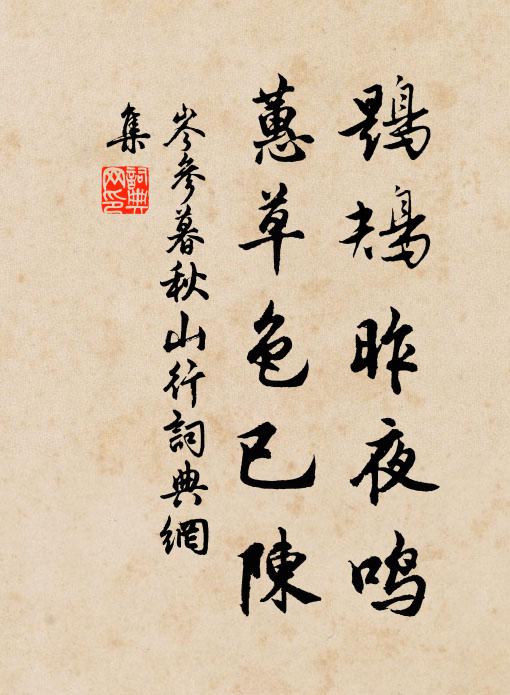 鶗鴂昨夜鳴
蕙草色已陳
岑參暮秋山行詞典網
集
詞典
网印